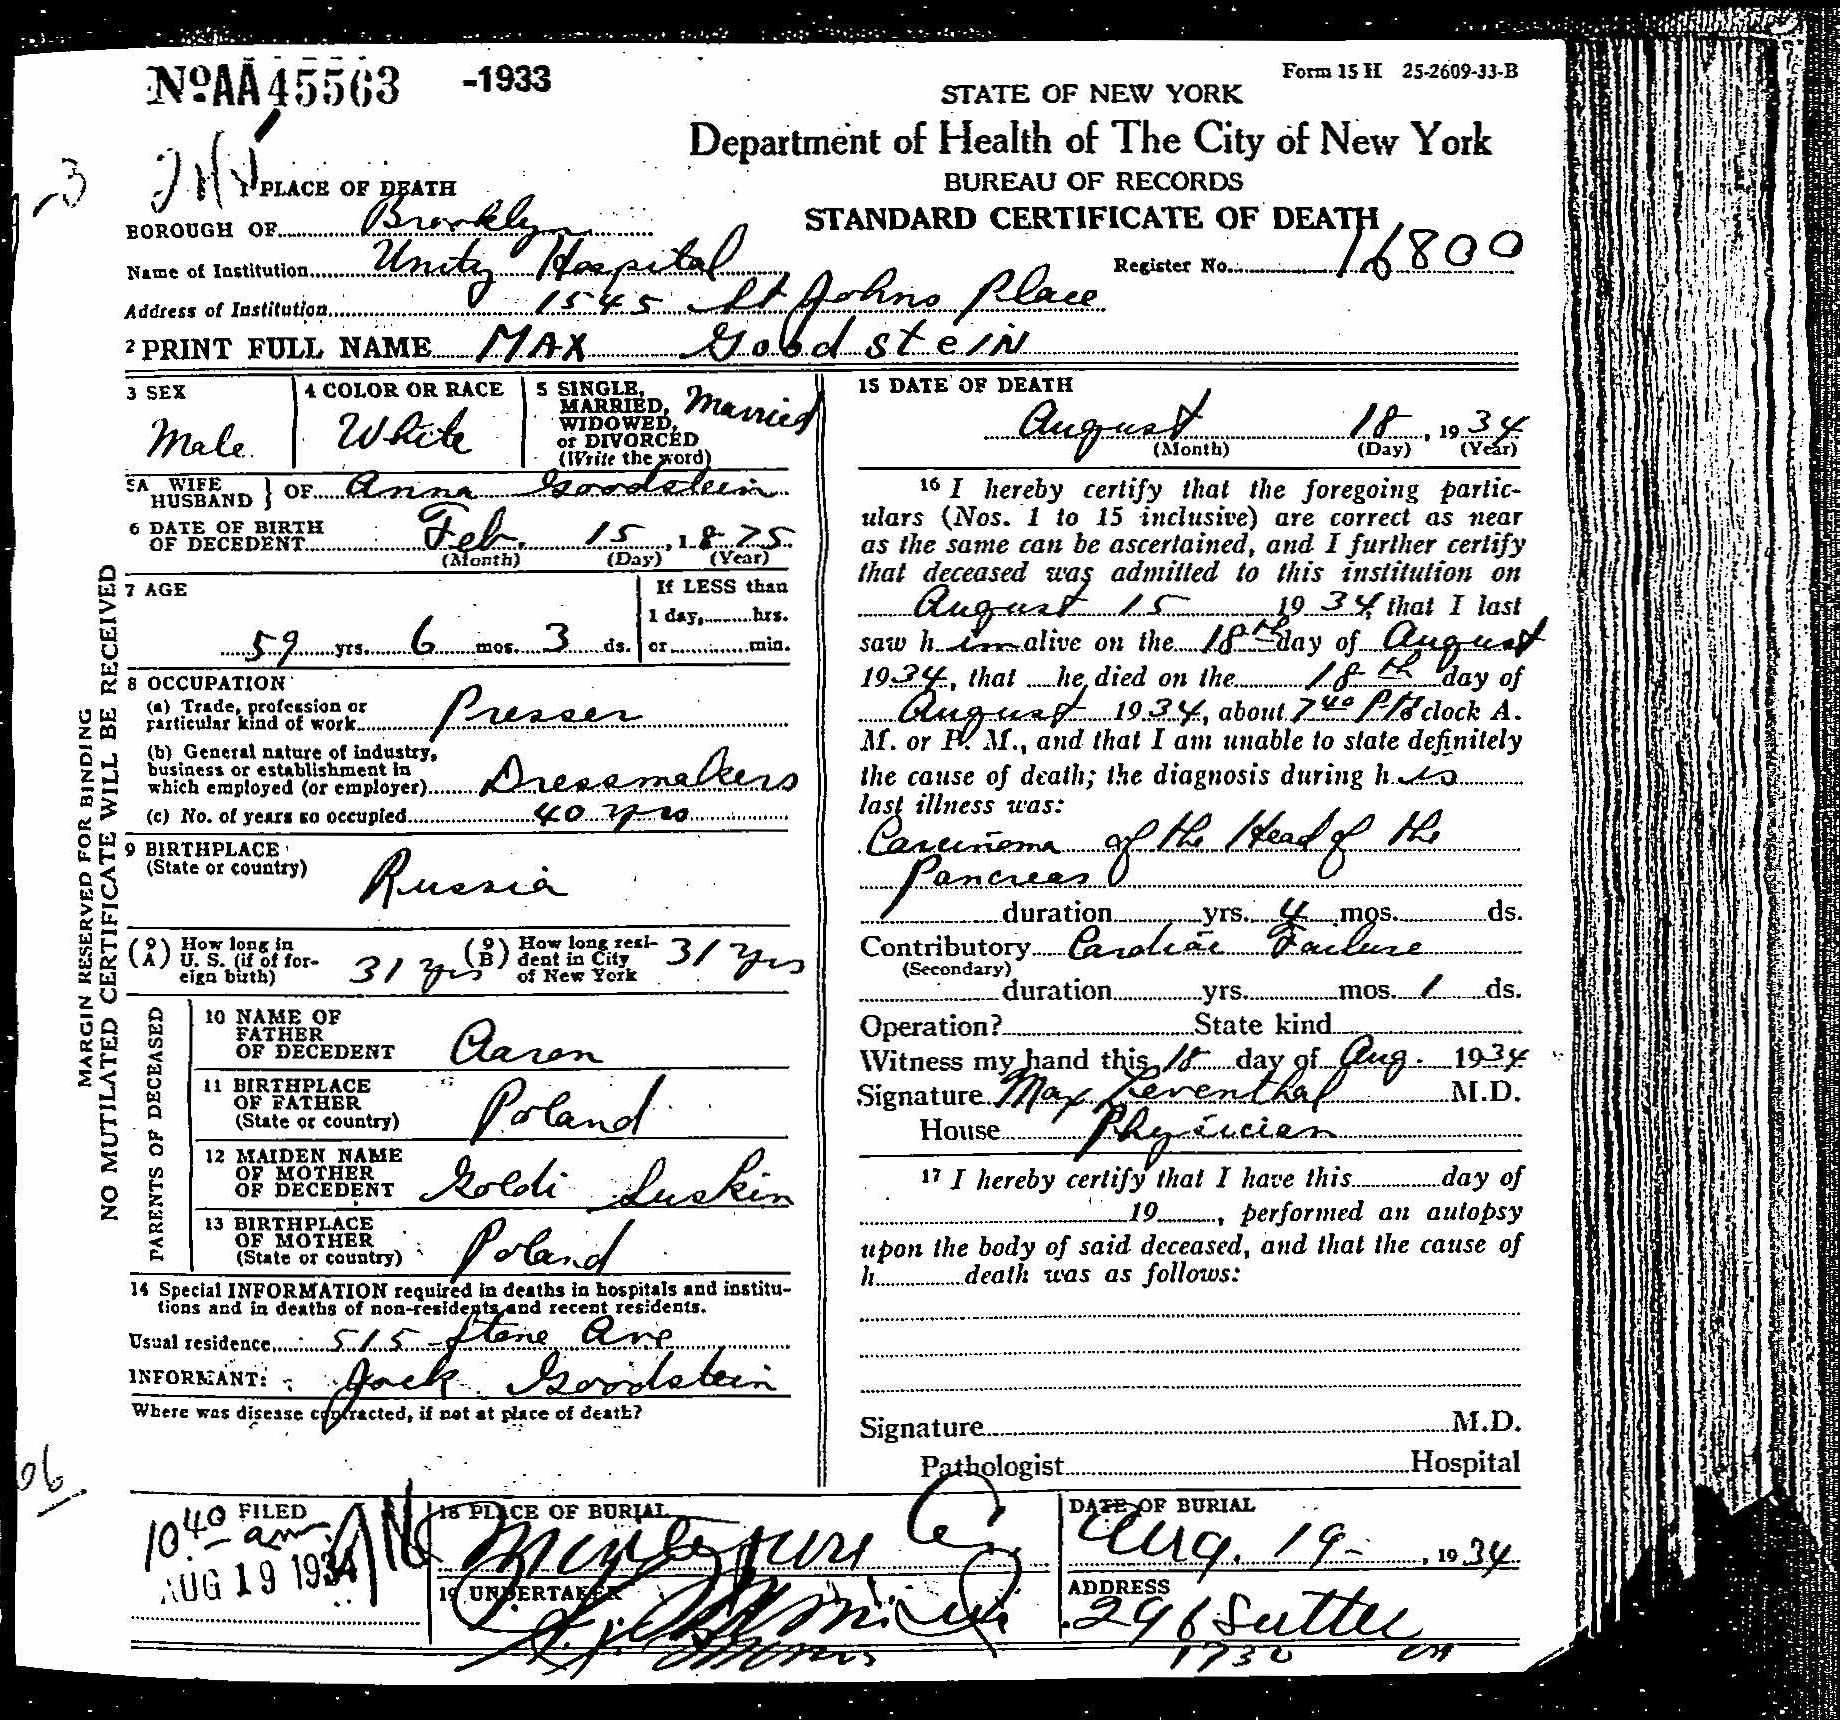 NºAA45563 -1933
Form 15 H 25-2609-33-B
STATE OF NEW YORK
Department of Health of The City of New York
BUREAU OF RECORDS
STANDARD CERTIFICATE OF DEATH
-3
1 PLACE OF DEATH
BOROUGH OF Brooklyn
Name of Institution Unity Hospital
Register No. 16800
Address of Institution 1545 St Johns Place
2 PRINT FULL NAME MAX GoodsteIN
3 SEX
Male
4 COLOR OR RACE
White
5 SINGLE,
MARRIED,
WIDOWED,
or DIVORCED
(Write the word)
Married
5A WIFE
HUSBAND } OF Anna Goodstein
6 DATE OF BIRTH
OF DECEDENT Feb. 15, 1875
(Month) (Day) (Year)
7 AGE
59 yrs. 6 mos. 3 ds.
If LESS than
1 day, hrs.
or min.
8 OCCUPATION
(a) Trade, profession or
particular kind of work Presser
(b) General nature of industry,
business or establishment in
which employed (or employer) Dressmakers
(c) No. of years so occupied 40 yrs
9 BIRTHPLACE
(State or country)
Russia
(9A) How long in
U. S. (if of for-
eign birth) 31 yrs
(9B) How long resi-
dent in City
of New York 31 yrs
PARENTS OF DECEASED
10 NAME OF
FATHER
OF DECEDENT Aaron
11 BIRTHPLACE
OF FATHER
(State or country) Poland
12 MAIDEN NAME
OF MOTHER
OF DECEDENT Goldi Luskin
13 BIRTHPLACE
OF MOTHER
(State or country) Poland
14 Special INFORMATION required in deaths in hospitals and institu-
tions and in deaths of non-residents and recent residents.
Usual residence 515 Stone Ave
INFORMANT: Jack Goodstein
Where was disease contracted, if not at place of death?
MARGIN RESERVED FOR BINDING
NO MUTILATED CERTIFICATE WILL BE RECEIVED
15 DATE OF DEATH
August 18, 1934
(Month) (Day) (Year)
16 I hereby certify that the foregoing partic-
ulars (Nos. 1 to 15 inclusive) are correct as near
as the same can be ascertained, and I further certify
that deceased was admitted to this institution on
August 15 1934, that I last
saw him alive on the 18th day of August
1934, that he died on the 18th day of
August 1934, about 7 40 PM o'clock A.
M. or P. M., and that I am unable to state definitely
the cause of death; the diagnosis during his
last illness was:
Carcinoma of the Head of the
Pancreas
duration yrs. 4 mos. ds.
Contributory Cardiac Failure
(Secondary)
duration yrs. mos. 1 ds.
Operation? State kind
Witness my hand this 18 day of Aug. 1934
Signature Max Leventhal M.D.
House Physician
17 I hereby certify that I have this day of
19 , performed an autopsy
upon the body of said deceased, and that the cause of
h death was as follows:
Signature M.D.
Pathologist Hospital
06
FILED
10 40 am
AUG 19 1934
18 PLACE OF BURIAL
Montefiore Ce.
DATE OF BURIAL
Aug. 19- , 1934
19 UNDERTAKER
ADDRESS
296 Sutter
1730